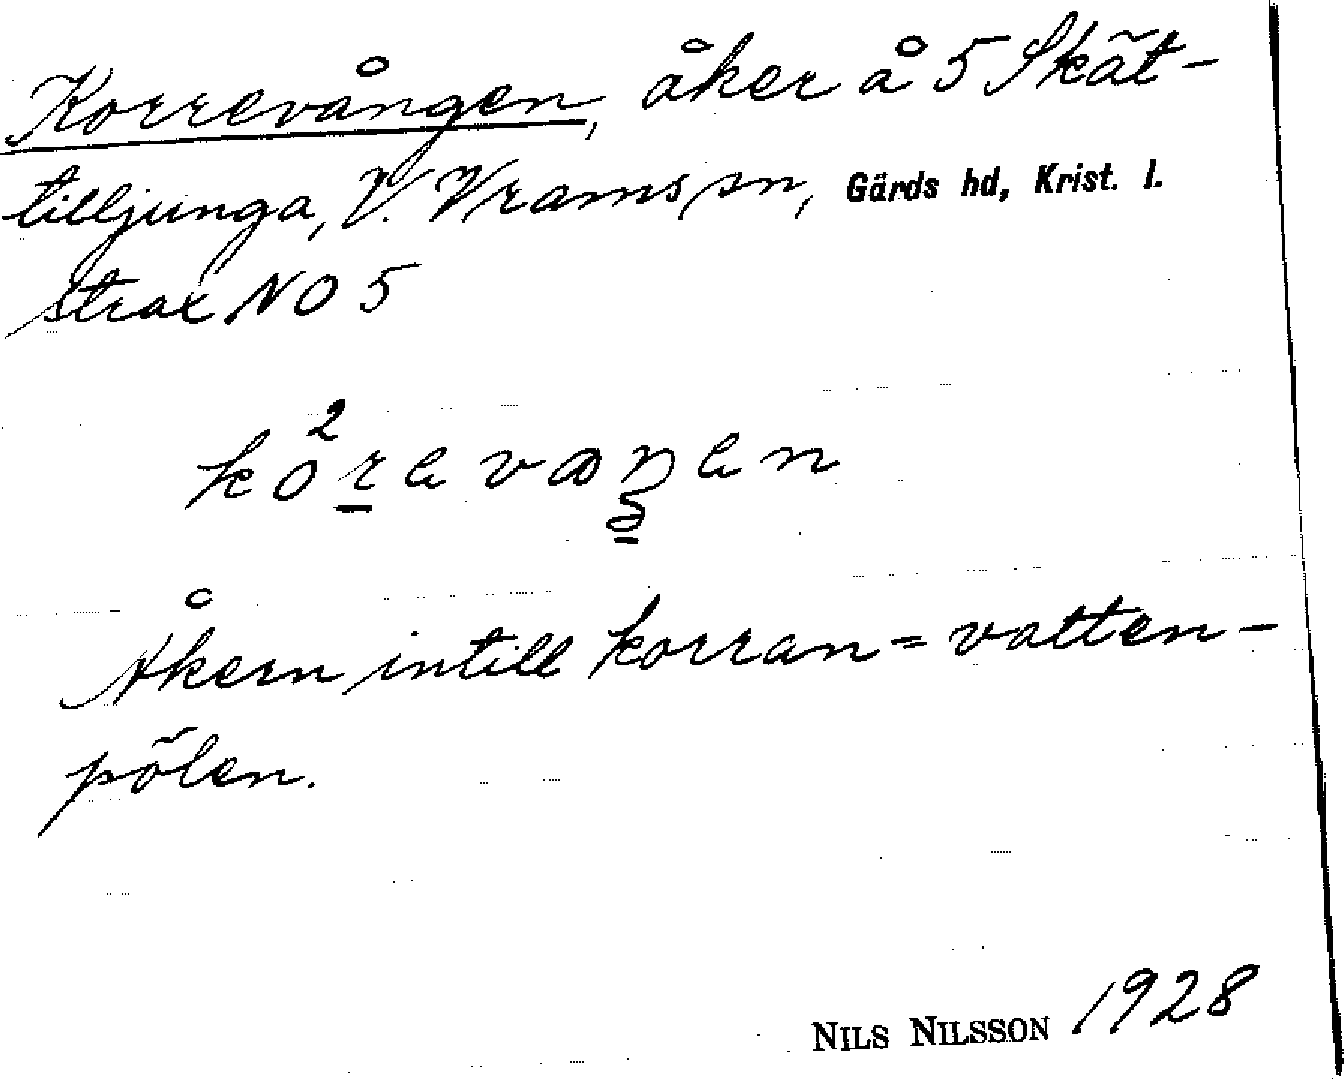 Korrevången, åker å 5 Skät-
tilljunga, V. Vrams sn, Gärds hd, Krist. l.
strax NO 5
Åkern intill korran = vatten-
pölen.
NILS NILSSON 1928